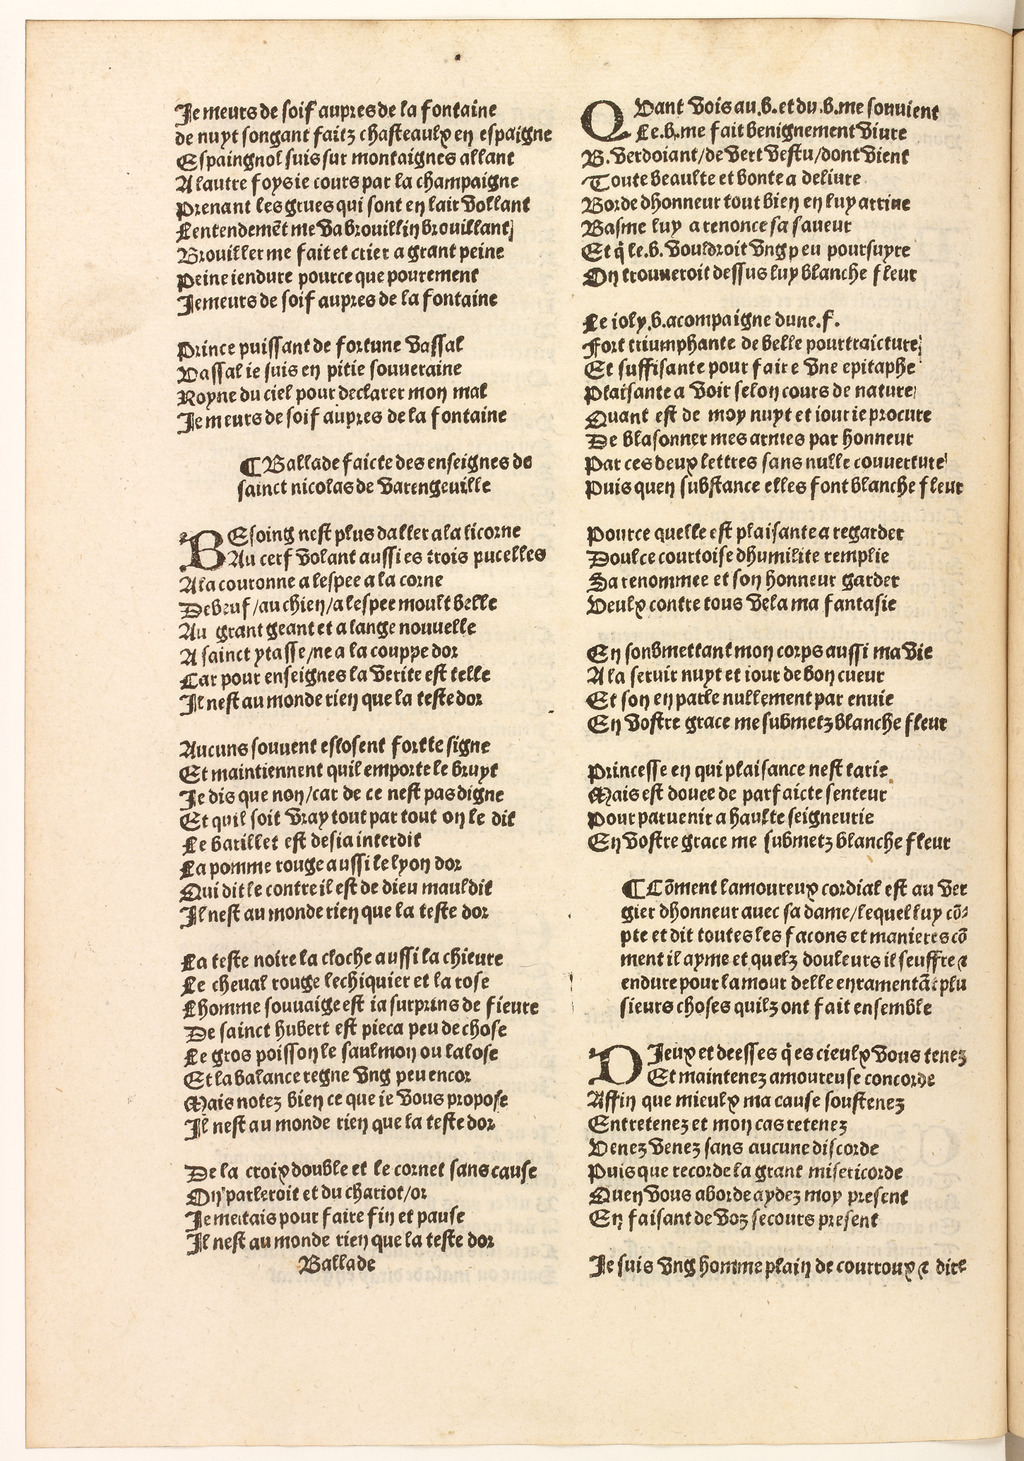 Je meurs de soif aupres de la fontaine
de nuyt songant faitz chasteaulx en espaigne
Espaingnol suis sur montaignes allant
A lautre foys ie cours par la champaigne
Prenant les grues qui sont en lair vollant
Lentendemēt me va brouillin brouillant
Brouiller me fait et crier a grant peine
Peine iendure pource que pourement
Je meurs de soif aupres de la fontaine
Prince puissant de fortune vassal
Vassal ie suis en pitie souueraine
Royne du ciel pour declarer mon mal
Je meurs de soif aupres de la fontaine
¶ Ballade faicte des enseignes de
sainct nicolas de varengeuille
BEsoing nest plus daller a la licorne
Au cerf volant aussi es trois pucelles
A la couronne a lespee a la corne
De beuf/au chien/a lespee moult belle
Au grant geant et a lange nouuelle
A sainct ytasse/ne a la couppe dor
Car pour enseignes la verite est telle
Il nest au monde rien que la teste dor
Aucuns souuent eslosent fort le signe
Et maintiennent quil emporte le bruyt
Je dis que non/car de ce nest pas digne
Et quil soit vray tout par tout on le dit
Le barillet est desia interdit
La pomme rouge aussi le lyon dor
Qui dit le contre il est de dieu mauldit
Il nest au monde rien que la teste dor
La teste noire la cloche aussi la chieure
Le cheual rouge leschiquier et la rose
Lhomme souuaige est ia surprins de fieure
De sainct hubert est pieca peu de chose
Le gros poisson le saulmon ou lalose
Et la balance regne vng peu encor
Mais notez bien ce que ie vous propose
Il nest au monde rien que la teste dor
De la croix double et le cornet sans cause
On parleroit et du chariot/or
Je me tais pour faire fin et pause
Il nest au monde rien que la teste dor
Ballade
QVant vois au .b. et du .b. me souuient
Le .b. me fait benignement viure
B. verdoiant/de vert vestu/dont vient
Toute beaulte et bonte a deliure
Borde dhonneur tout bien en luy arriue
Basme luy a renonce sa saueur
Et q̄ le .b. vouldroit vng peu poursuyre
On trouueroit dessus luy blanche fleur
Le ioly .b. acompaigne dune .f.
Fort triumphante de belle pourtraicture
Et suffisante pour faire vne epitaphe
Plaisante a voir selon cours de nature
Quant est de moy nuyt et iour ie procure
De blasonner mes armes par honneur
Par ces deux lettres sans nulle couuerture
Puis quen substance elles font blanche fleur
Pource quelle est plaisante a regarder
Doulce courtoise dhumilite remplie
Sa renommee et son honneur garder
Veulx contre tous vela ma fantasie
En soubmettant mon corps aussi ma vie
A la seruir nuyt et iour de bon cueur
Et son en parle nullement par enuie
En vostre grace me submetz blanche fleur
Princesse en qui plaisance nest tarie
Mais est douee de parfaicte senteur
Pour paruenir a haulte seigneurie
En vostre grace me submetz blanche fleur
¶ Cōment lamoureux cordial est au ver
gier dhonneur auec sa dame/lequel luy cō⸗
pte et dit toutes les facons et manieres cō
ment il ayme et quelz douleurs il seuffre ⁊
endure pour lamour delle en ramentāt plu
sieurs choses quilz ont fait ensemble
DIeux et deesses q̄ es cieulx vous tenez
Et maintenez amoureuse concorde
Affin que mieulx ma cause soustenez
Entretenez et mon cas retenez
Venez venez sans aucune discorde
Puis que recorde la grant misericorde
Quen vous aborde aydez moy present
En faisant de voz secours present
Je suis vng homme plain de courroux ⁊ dire